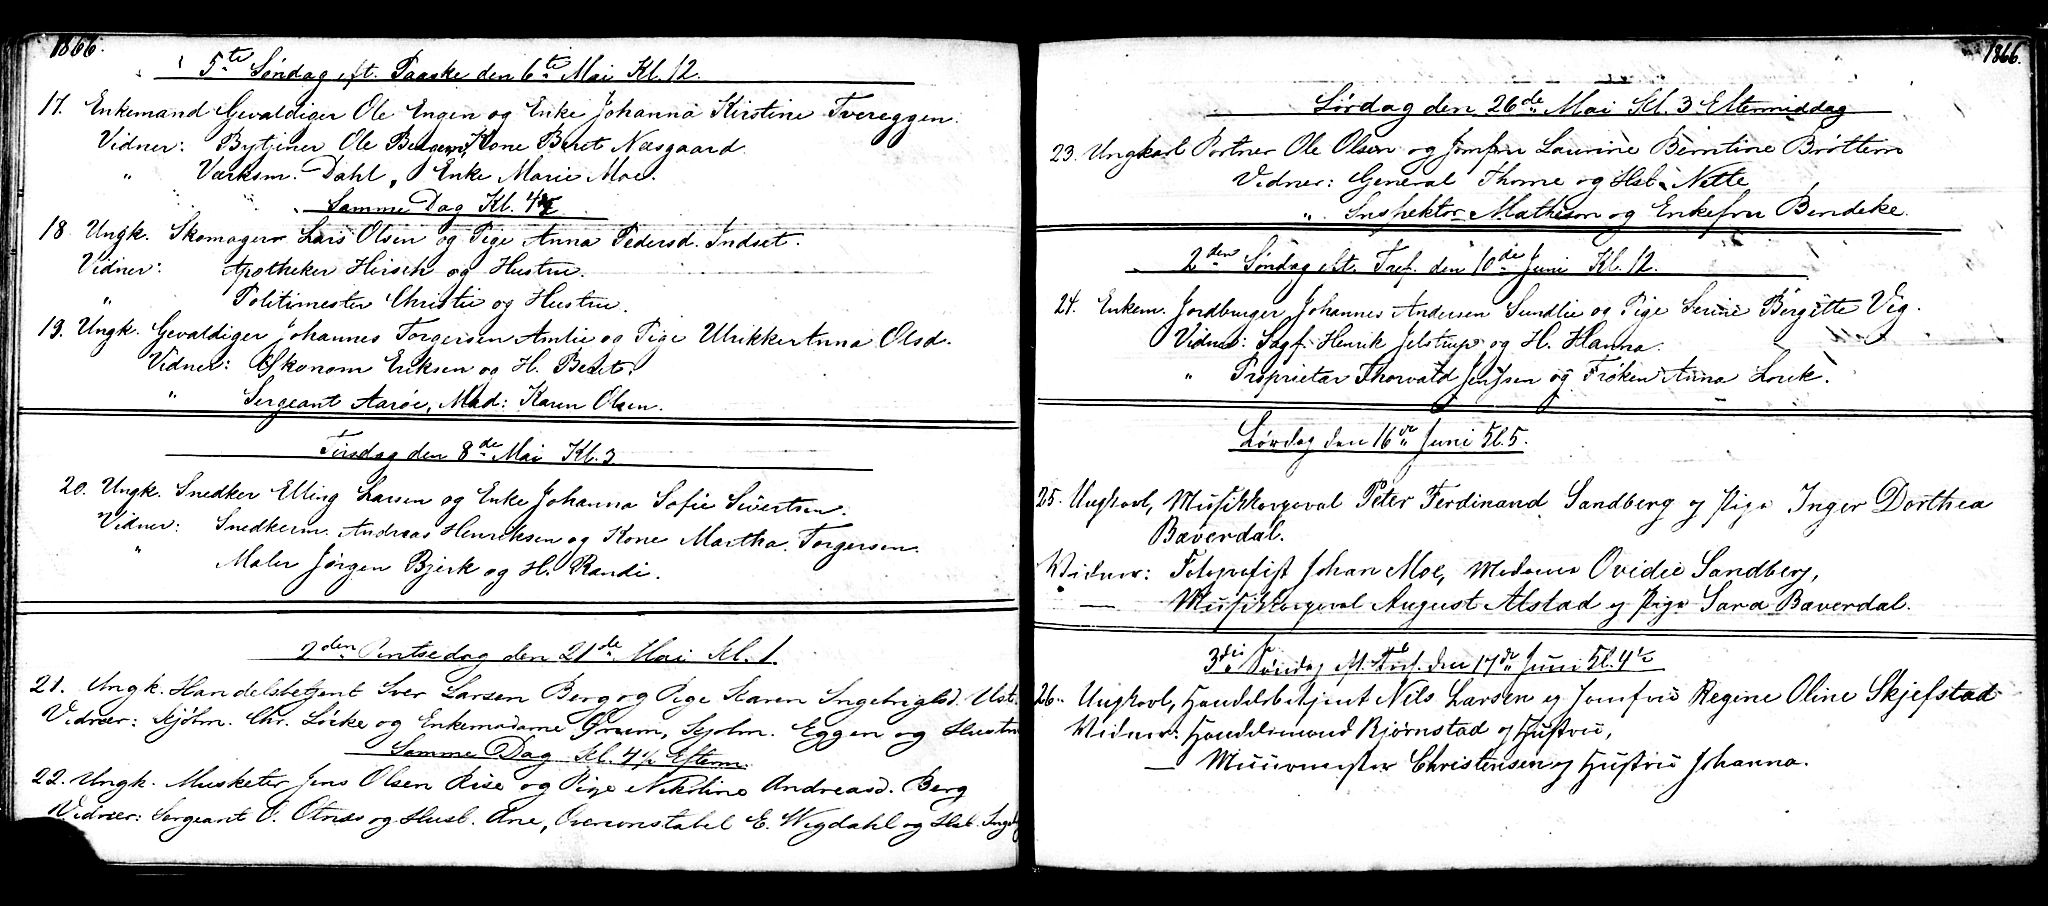 1866.
5te Søndag eft. Paaske den 6te Mai Kl. 12.
17. Enkemand Gevaldiger Ole Engen og Enke Johanna Kirstine Tvereggen.
Vidner: Bytjener Ole Kone Beret Næsgaard.
" Værksm. Dahl, Enke Marie Moe.
Samme Dag Kl. 4½
18. Ungk. Skomager Lars Olsen og Pige Anna Pedersd. Indset.
Vidner: Apotheker Hirsch og Hustru.
" Politimester Christie og Hustru.
19. Ungk. Gevaldiger Johannes Torgersen Amlie og Pige Ulrikke Anna Olsd.
Vidner: Økonom Eriksen og H. Beret.
" Sergeant Aarøe, Mad: Karen Olsen.
Tirsdag den 8de Mai Kl. 3
20. Ungk. Snedker Elling Larsen og Enke Johanna Sofie Sivertsen.
Vidner: Snedkerm. Andreas Henriksen og Kone Martha Torgersen.
" Maler Jørgen Bjerk og H. Randi.
2den Pintsedag den 21de Mai Kl. 1.
21. Ungk. Handelsbetjent Iver Larsen Berg og Pige Karen Ingebrigtsd. Ust.
Vidner: Kjøbm. Chr. Löcke og Enkemadame Grum, Kjøbm. Eggen og Hustru
Samme Dag Kl. 4½ Efterm.
22. Ungk. Musketer Jens Olsen Rise og Pige Nikoline Andreasd. Berg
Vidner: Sergeant O. Olnæs og Hust. Ane, Overconstabel E. Wigdahl og Hst.
1866.
Lørdag den 26de Mai Kl. 3 Eftermiddag
23. Ungkarl Portner Ole Olsen og Jomfru Laurine Berntine Brøttem
Vidner: General Thome og Hst. Nette
" Inspektor Matheson og Enkefru Bendeke.
2den Søndag eft. Tref. den 10de Juni Kl. 12.
24. Enkem. Jordbruger Johannes Andersen Sundlie og Pige Serine Bergitte Vig.
Vidner: Sagf. Henrik Jelstrup og H. Hanna.
" Proprietær Thorvald Jenssen og Frøken Anna Lorck.
Lørdag den 16de Juni Kl. 5.
25. Ungkarl, Musikkorporal Peter Ferdinand Sandberg og Pige Inger Dorthea
Bæverdal.
Vidner: Fotografist Johan Moe, Madame Ovidie Sandberg,
— Musikkorporal August Alstad og Pige Sara Bæverdal.
3die Søndag eft. Tref. den 17de Juni Kl. 4½
26. Ungkarl, Handelsbetjent Nils Larsen og Jomfru Regine Oline Skjefstad
Vidner: Handelsmand Bjørnstad og Hustru,
— Muurmester Christensen og Hustru Johanna.